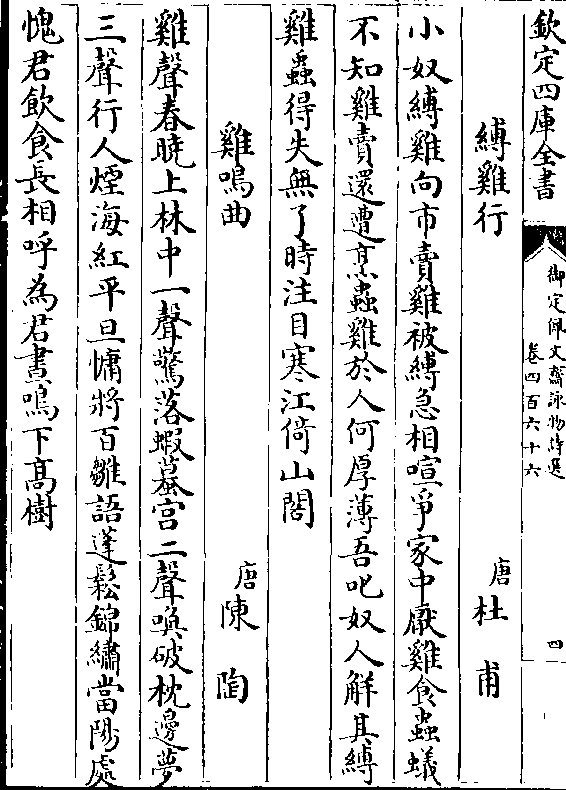 欽定四庫全書
御定佩文齋詠物詩選
卷四百六十六
四
縛雞行
唐 杜甫
小奴縛雞向市賣雞被縛急相喧爭家中厭雞食蟲蟻
不知雞賣還遭烹蟲雞於人何厚薄吾叱奴人解其縛
雞蟲得失無了時注目寒江倚山閣
雞鳴曲
唐 陳陶
雞聲春曉上林中一聲驚落蝦蟇宫二聲喚破枕邊夢
三聲行人煙海紅平旦慵將百雛語蓬鬆錦繡當陽處
愧君飲食長相呼為君晝鳴下髙樹